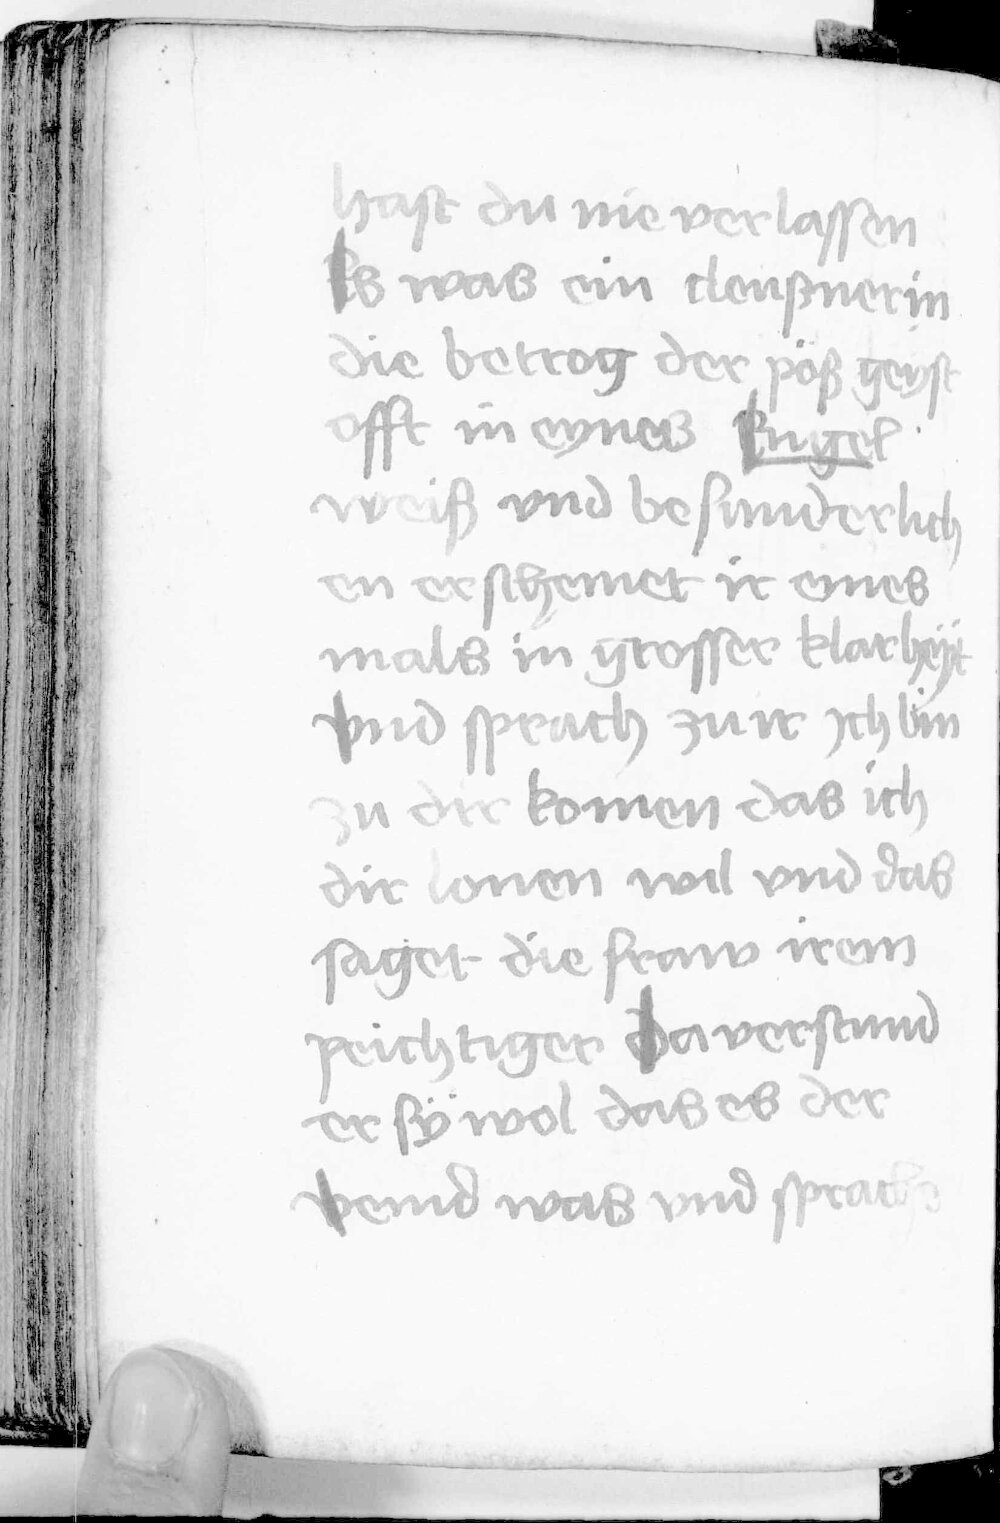 hast du nie verlassen
Es was ein cleußnerin
die betrog der pöß geyst
offt in eynes Engel
weiß vnd besunderlich
en erscheinet ir eines
mals in grosser klarheÿt
vnd sprach zu ir Ich bin
zu dir komen das ich
dir lonen wil vnd das
saget die fraw irem
peichtiger da verstund
er sÿ wol das es der
veind was vnd sprach